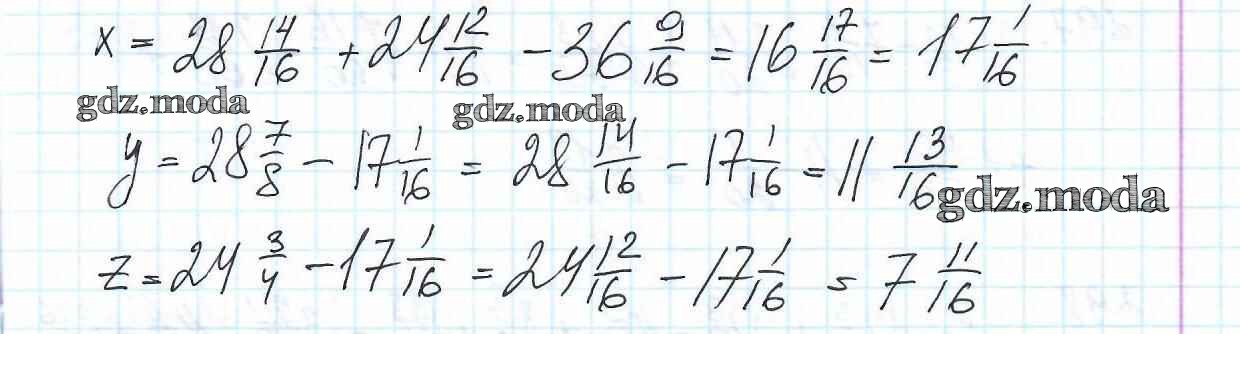 x = 28 14/16 + 24 12/16 - 36 9/16 = 16 17/16 = 17 1/16
gdz.moda gdz.moda
y = 28 7/8 - 17 1/16 = 28 14/16 - 17 1/16 = 11 13/16
gdz.moda
z = 24 3/4 - 17 1/16 = 24 12/16 - 17 1/16 = 7 11/16